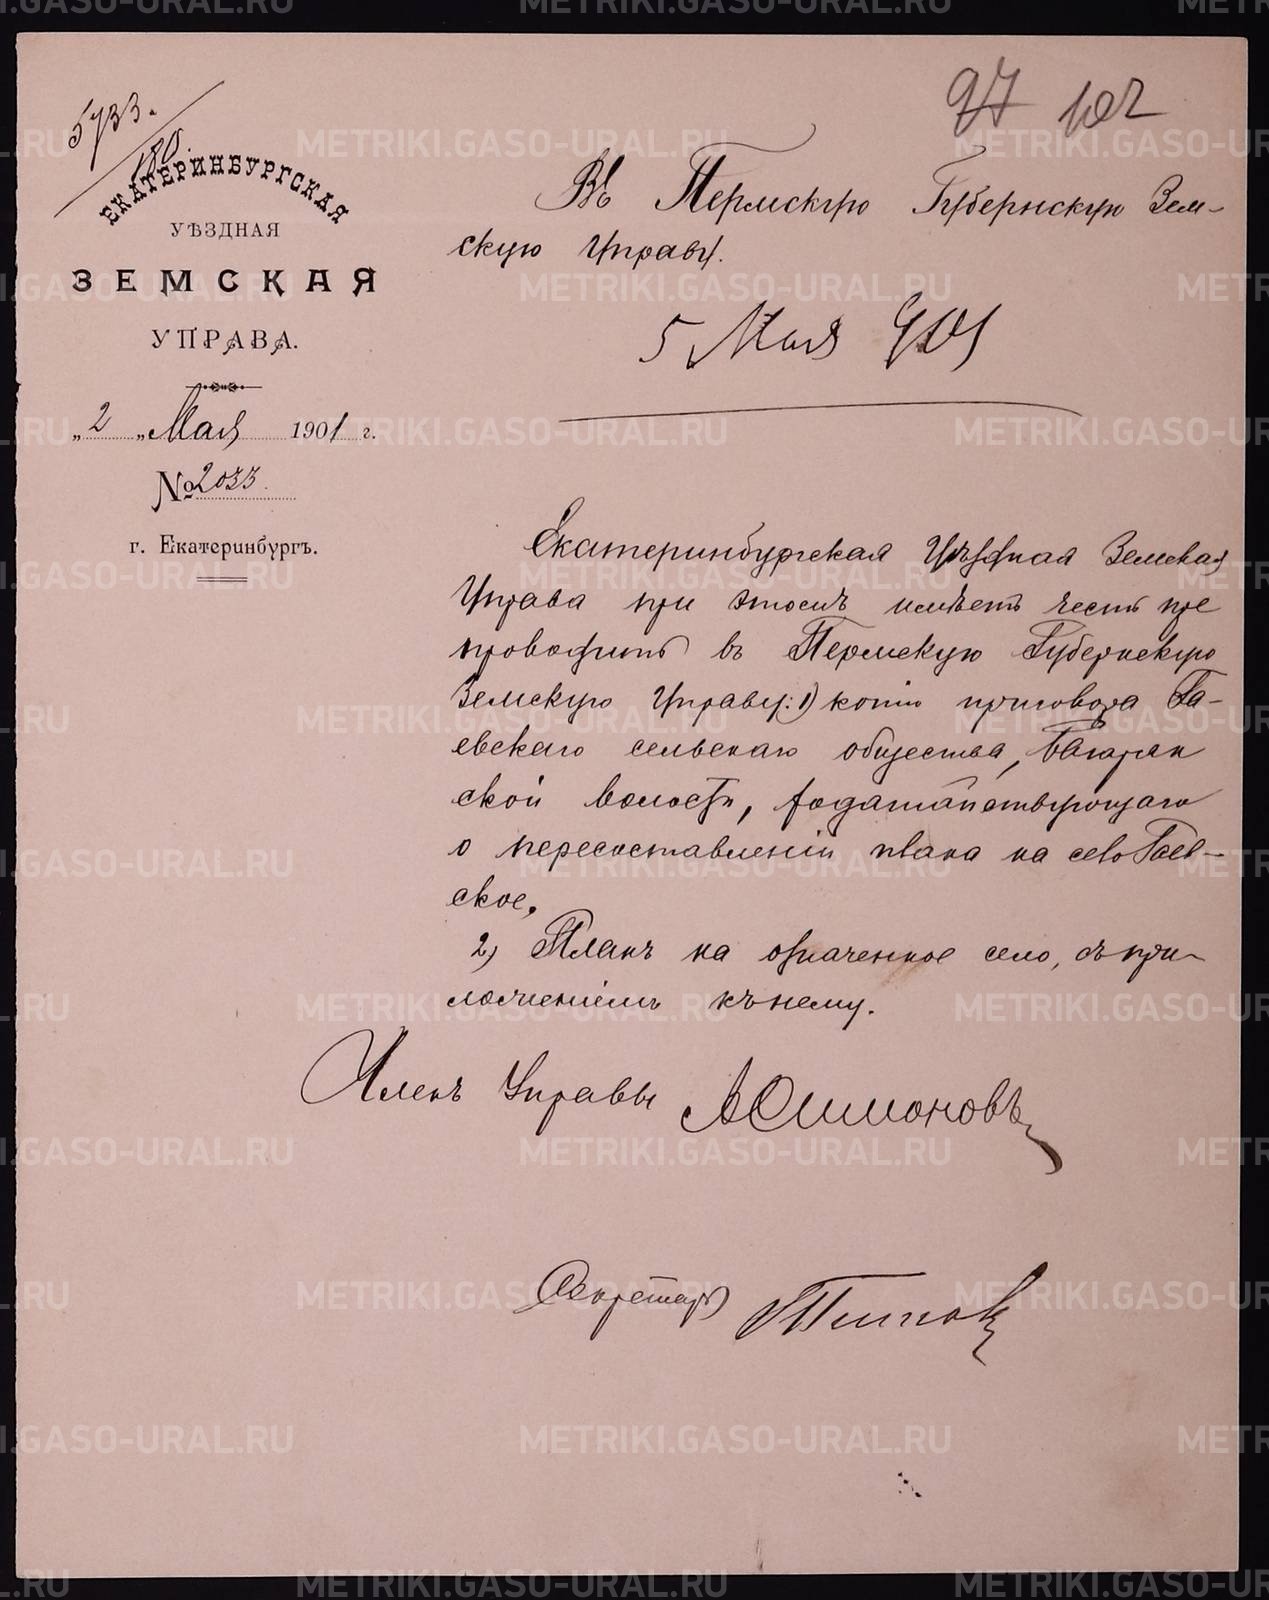 5733.
180.
97 102
ЕКАТЕРИНБУРГСКАЯ
УѢЗДНАЯ
ЗЕМСКАЯ
УПРАВА.
„2„ Мая 1901 г.
№ 2033.
г. Екатеринбургъ.
Въ Пермскую Губернскую Зем-
скую Управу.
5 Мая 901
Екатеринбургская Уѣздная Земская
Управа при этомъ имѣетъ честь пре
проводить въ Пермскую Губернскую
Земскую Управу: 1) копію приговора Га-
евскаго сельскаго общества,
ской волости, ходатайствующаго
о пересоставленіи плана на село Гаев-
ское.
2) Планъ на означенное село, съ при-
ложеніемъ къ нему.
Членъ Управы АСимоновъ
Секретарь
METRIKI.GASO-URAL.RU